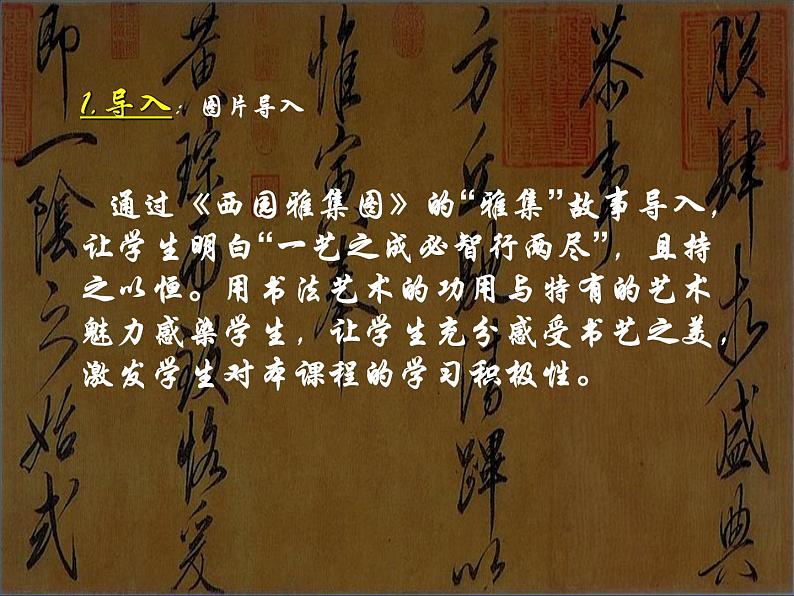 1. 导入：图片导入
通过《西园雅集图》的“雅集”故事导入，
让学生明白“一艺之成必智行两尽”，且持
之以恒。用书法艺术的功用与特有的艺术
魅力感染学生，让学生充分感受书艺之美，
激发学生对本课程的学习积极性。
盛典
恭事
方丘
即一陰之始式